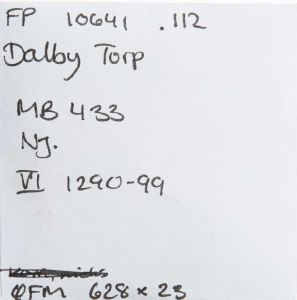 FP 10641 .112
Dalby Torp
MB 433
NJ.
VI 1290-99
ØFM 628 x 23